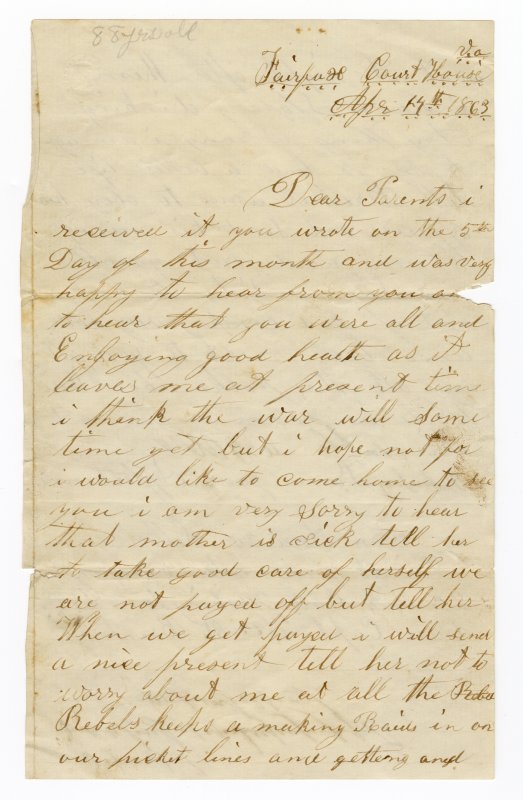 88 yrs old
Va
Fairfax Court House
Apr 17th 1863
Dear Parents i
received it you wrote on the 5th
Day of this month and was very
happy to hear from you an
to hear that you were all and
Enjoying good health as it
leaves me at present time
i think the war will some
time yet but i hope not for
i would like to come home to see
you i am very sorry to hear
that mother is sick tell her
to take good care of herself we
are not payed off but tell her
When we get payed i will send
a nice present tell her not to
worry about me at all the Rebe
Rebels keeps a making Raids in on
our picket lines and getting and